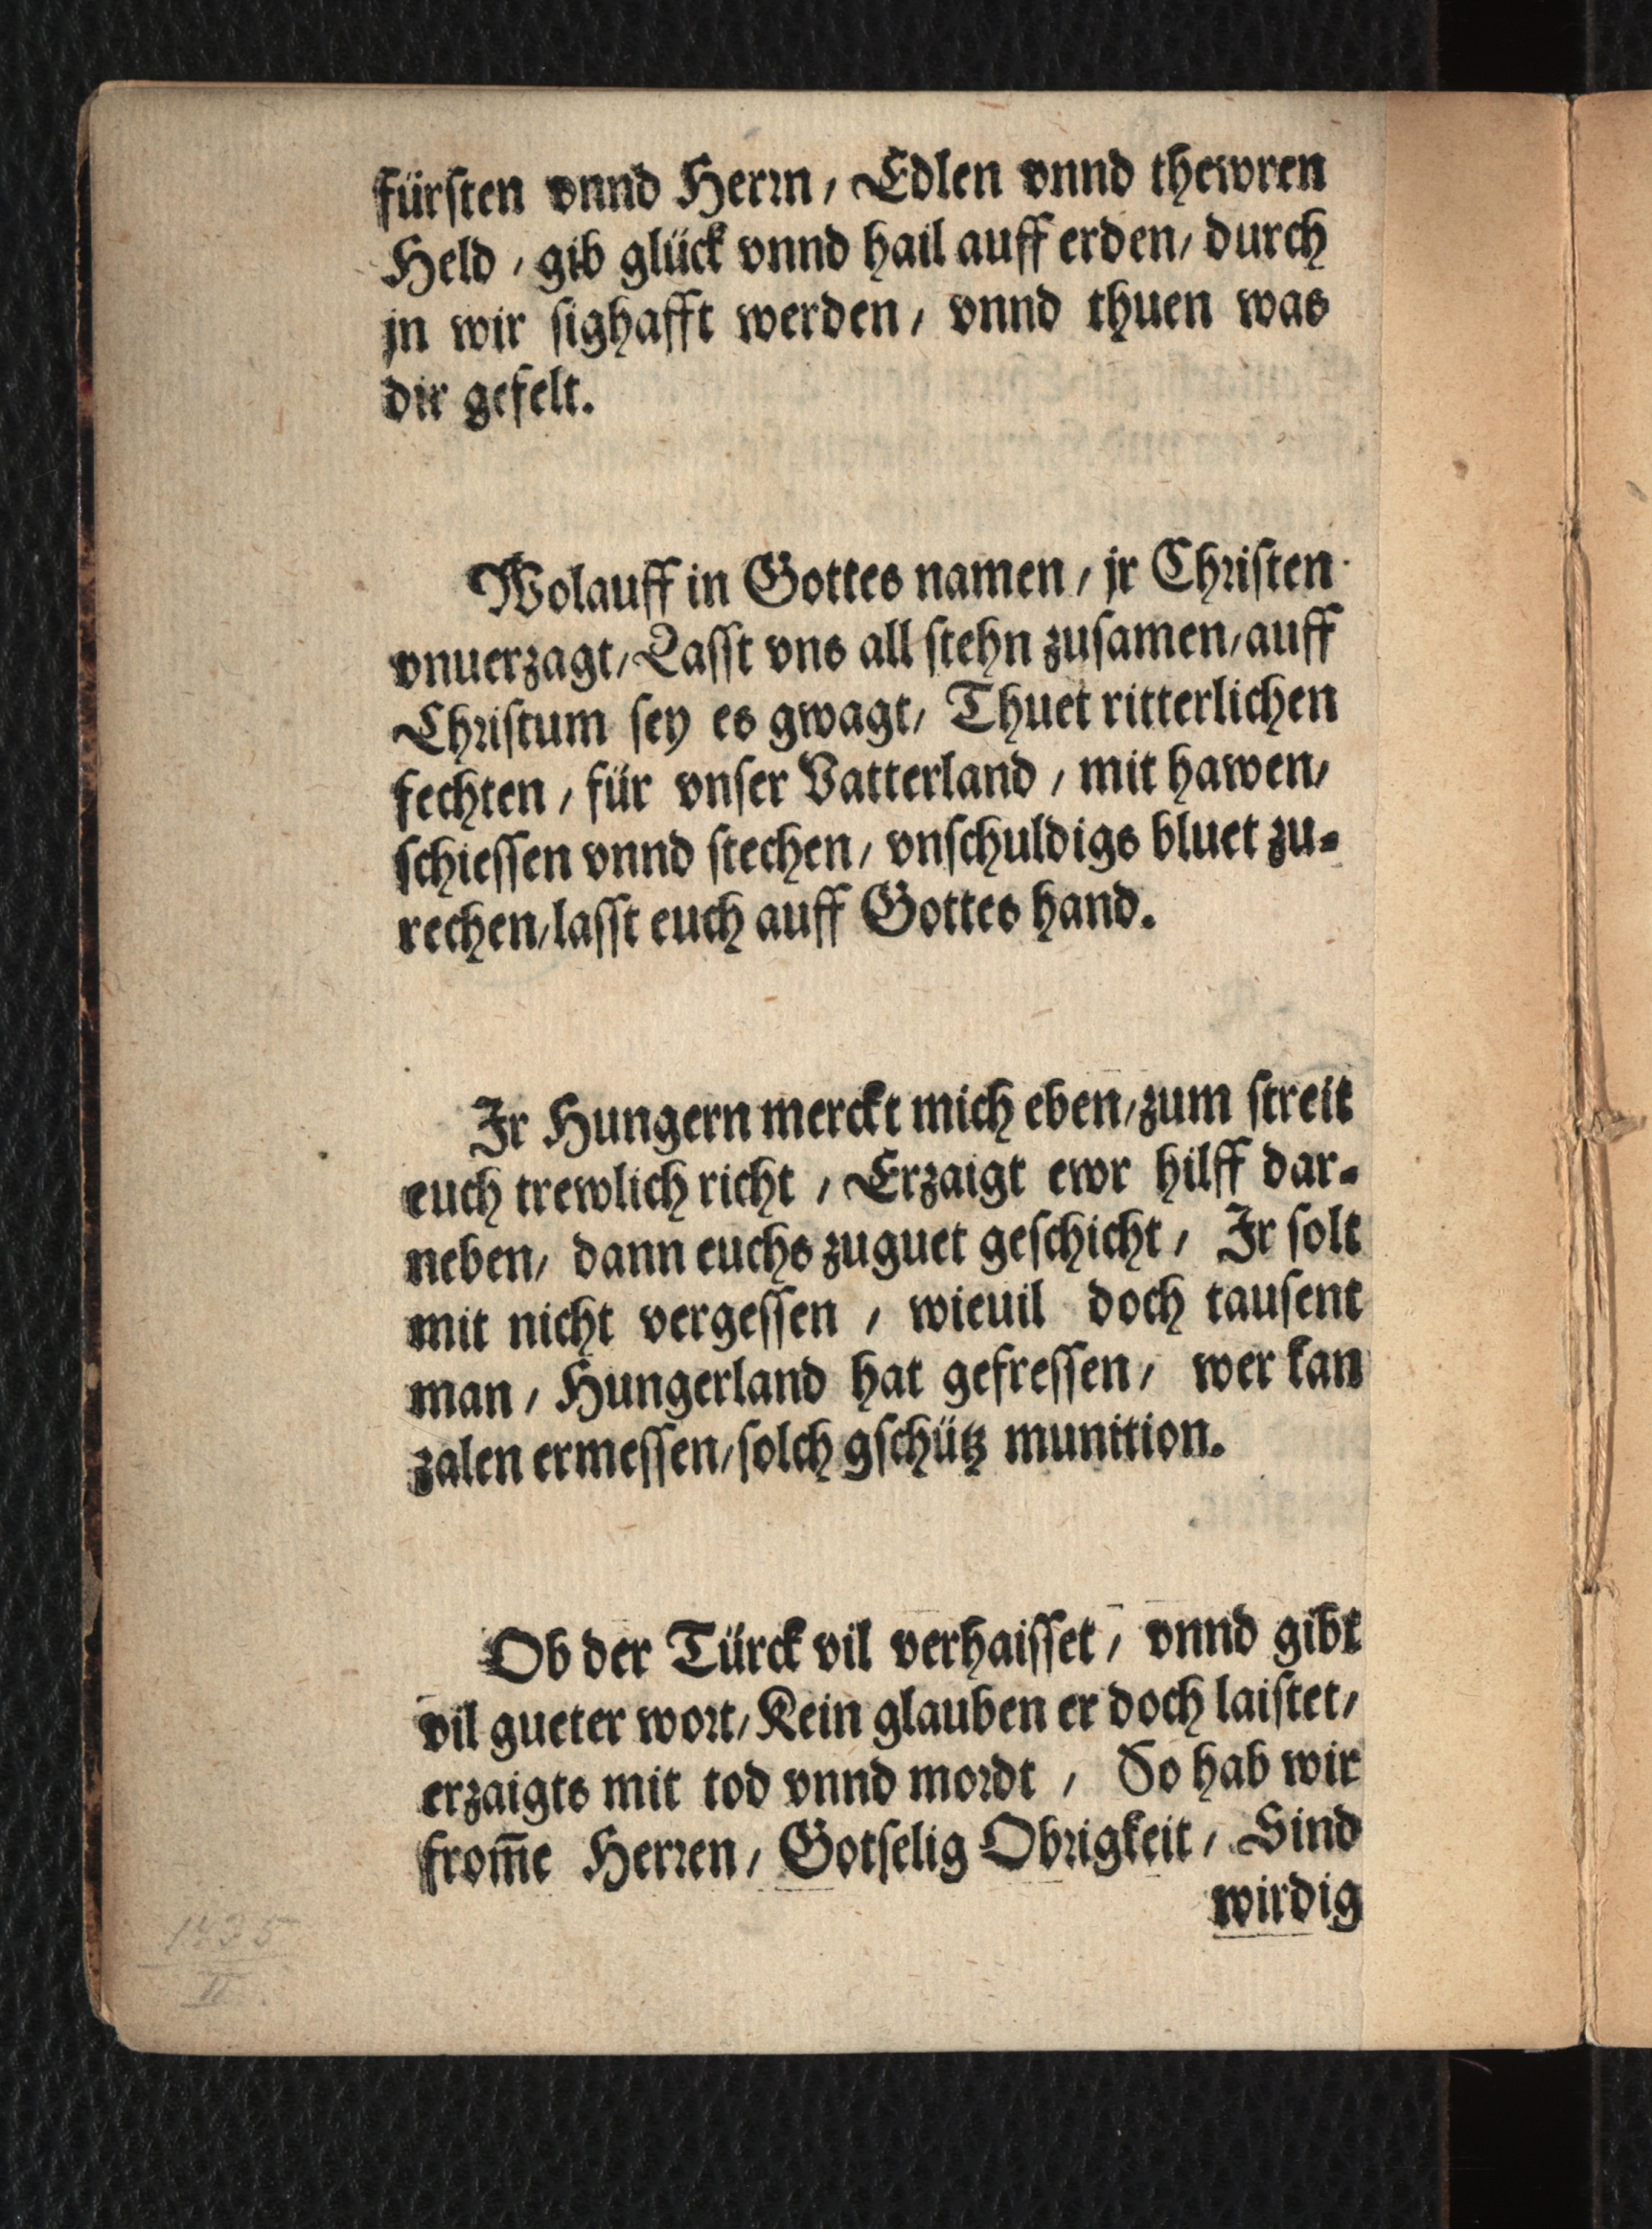 fürsten vnnd Herrn / Edlen vnnd thewren
Held / gib glück vnnd hail auff erden / durch
jn wir sighafft werden / vnnd thuen was
dir gefelt.
Wolauff in Gottes namen / jr Christen
vnuerzagt / Lasst vns all stehn zusamen / auff
Christum sey es gwagt / Thuet ritterlichen
fechten / für vnser Vatterland / mit hawen /
schiessen vnnd stechen / vnschuldigs bluet zu-
rechen / lasst euch auff Gottes hand.
Jr Hungern merckt mich eben / zum streit
euch trewlich richt / Erzaigt ewr hilff dar-
neben / dann euchs zuguet geschicht / Jr solt
mit nicht vergessen / wieuil doch tausent
man / Hungerland hat gefressen / wer kan
zalen ermessen / solch gschütz munition.
Ob der Türck vil verhaisset / vnnd gibt
vil gueter wort / Kein glauben er doch laistet /
erzaigts mit tod vnnd mordt / So hab wir
from̄e Herren / Gotselig Obrigkeit / Sind
wirdig
1435
II